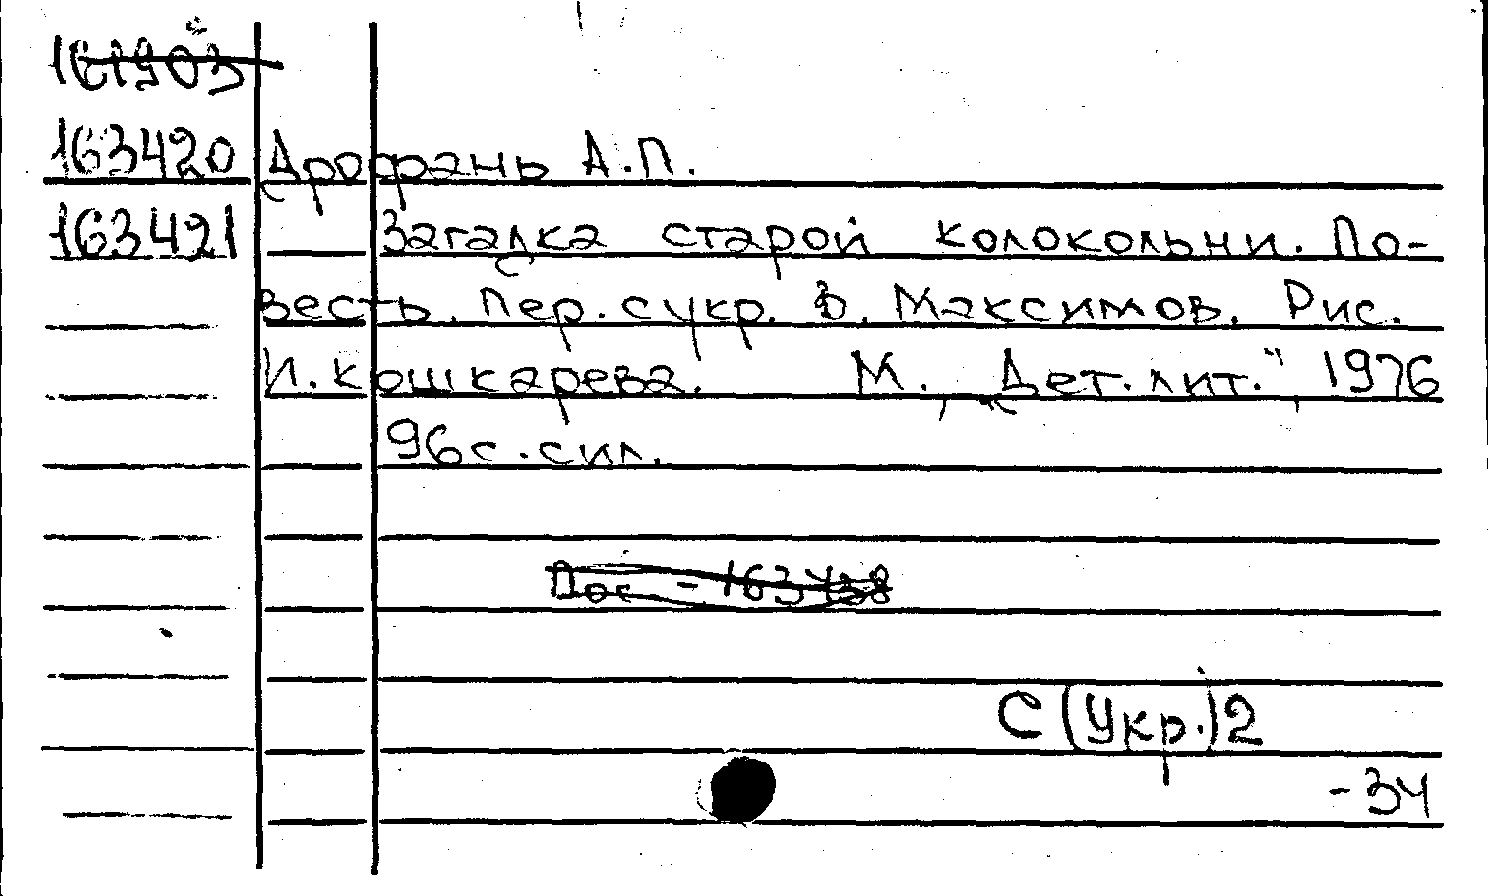 161903
163420 Дрофань А.П.
163421 Загадка старой колокольни. По-
весть. Пер. с укр. В. Максимов. Рис.
И. Кошкарева. М., „Дет. лит.", 1976
96 с. с ил.
Дос - 163438
С (Укр.) 2
- 34